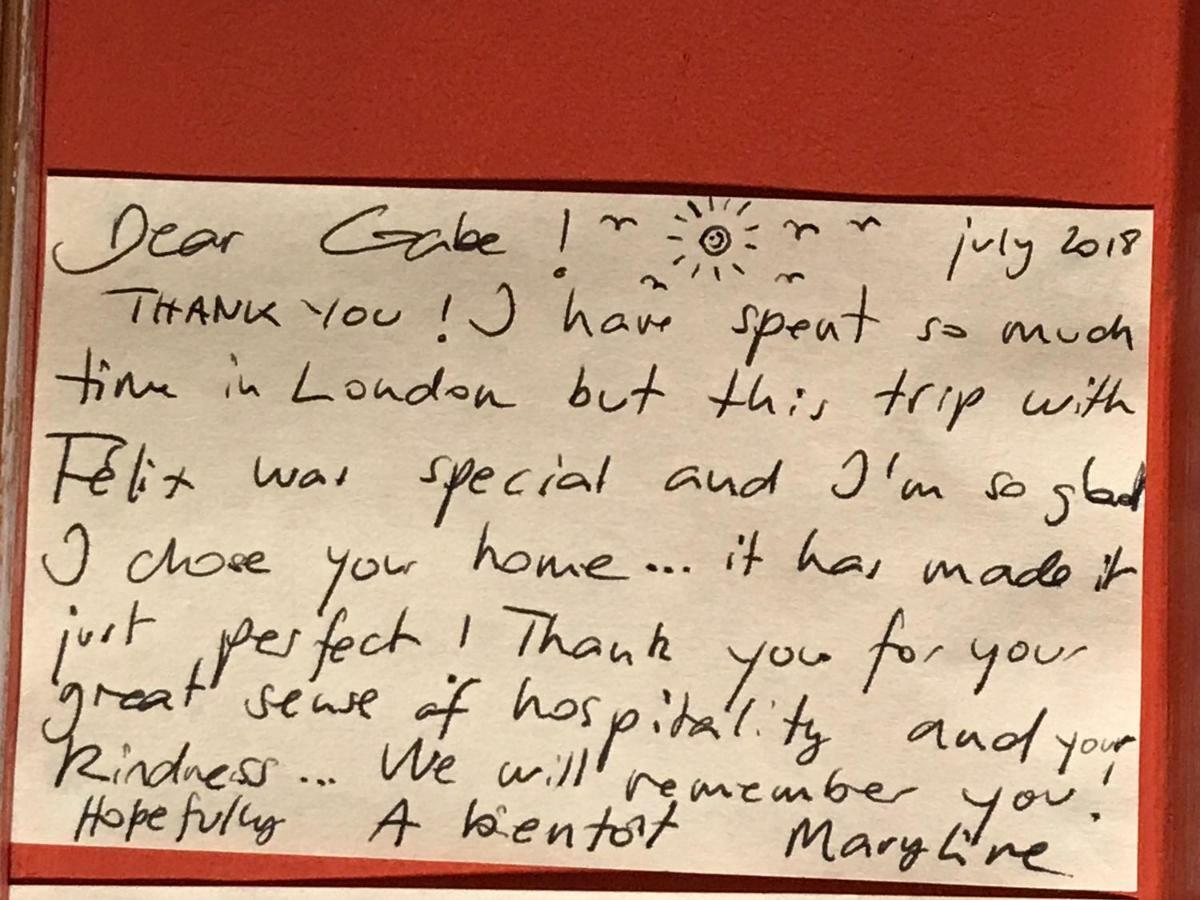 Dear Gabe ! july 2018
THANK YOU ! I have spent so much
time in London but this trip with
Félix was special and I'm so glad
I chose your home... it has made it
just perfect ! Thank you for your
great sense of hospitality and your
kindness... We will remember you !
Hopefully A bientôt Maryline